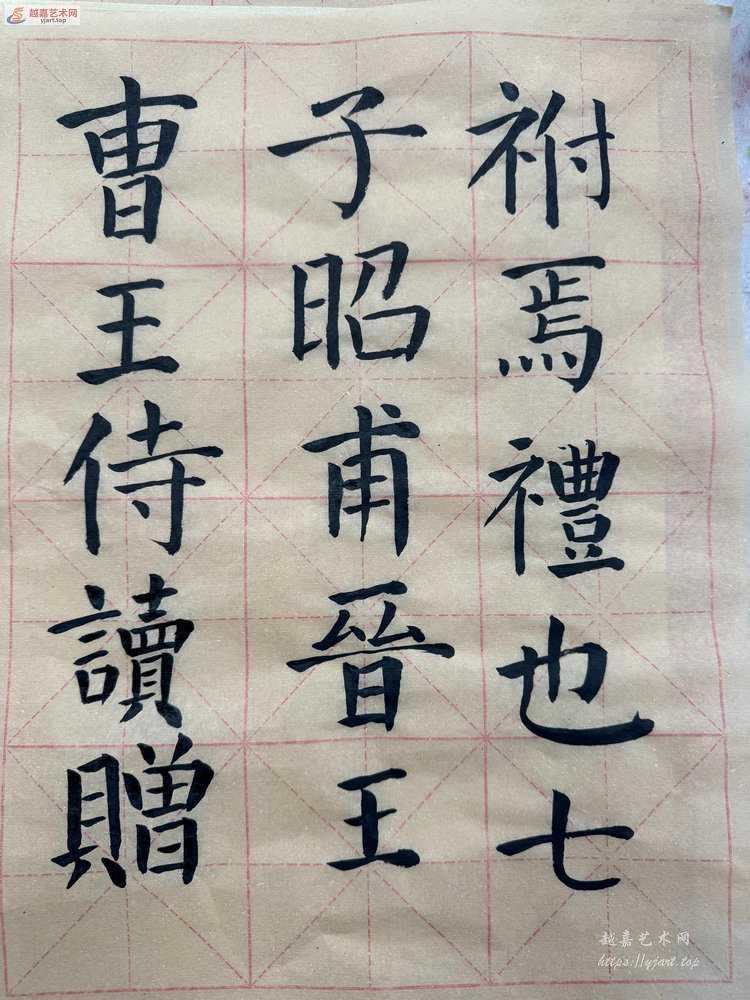 越嘉艺术网
yjart.top
祔焉禮也七
子昭甫晉王
曹王侍讀贈
越嘉艺术网
https://yjart.top